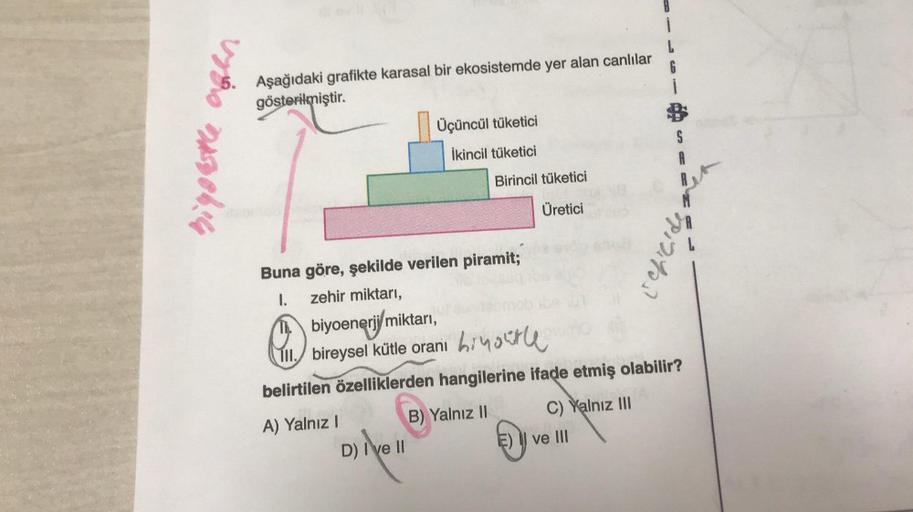 5. Aşağıdaki grafikte karasal bir ekosistemde yer alan canlılar
gösterilmiştir.
Üçüncül tüketici
İkincil tüketici
Birincil tüketici
Üretici
Buna göre, şekilde verilen piramit;
I. zehir miktarı,
II. biyoenerji miktarı,
III. bireysel kütle oranı biyokütle
belirtilen özelliklerden hangilerine ifade etmiş olabilir?
A) Yalnız I
B) Yalnız II
C) Yalnız III
D) I ve II
E) II ve III
BİLGİ
SARMAL